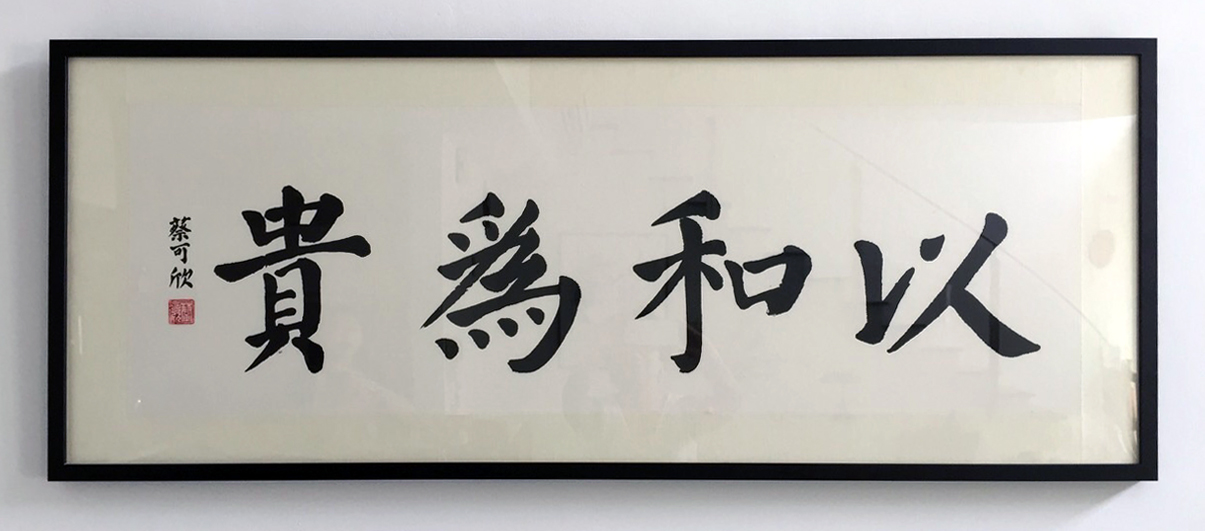 以和為貴
蔡可欣